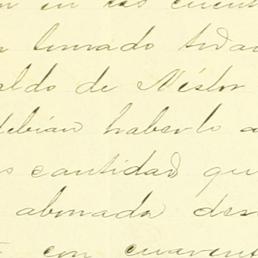 en las cuent
tomado toda
aldo de Néstor
debian haberlo a
cantidad qu
abonada des
con cuarent